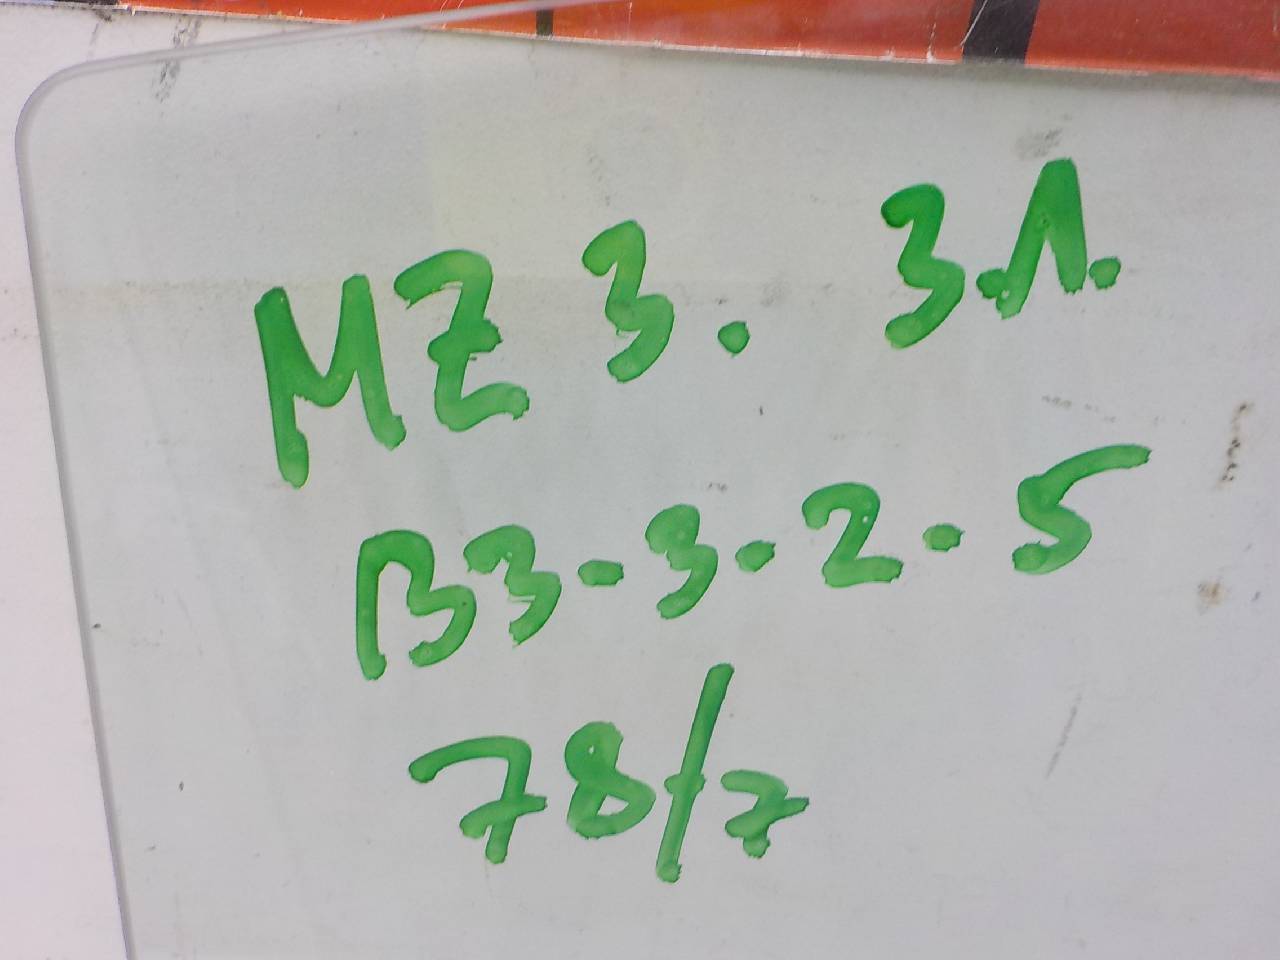 MZ 3. 3.Л.
B3-3-2-5
78/7